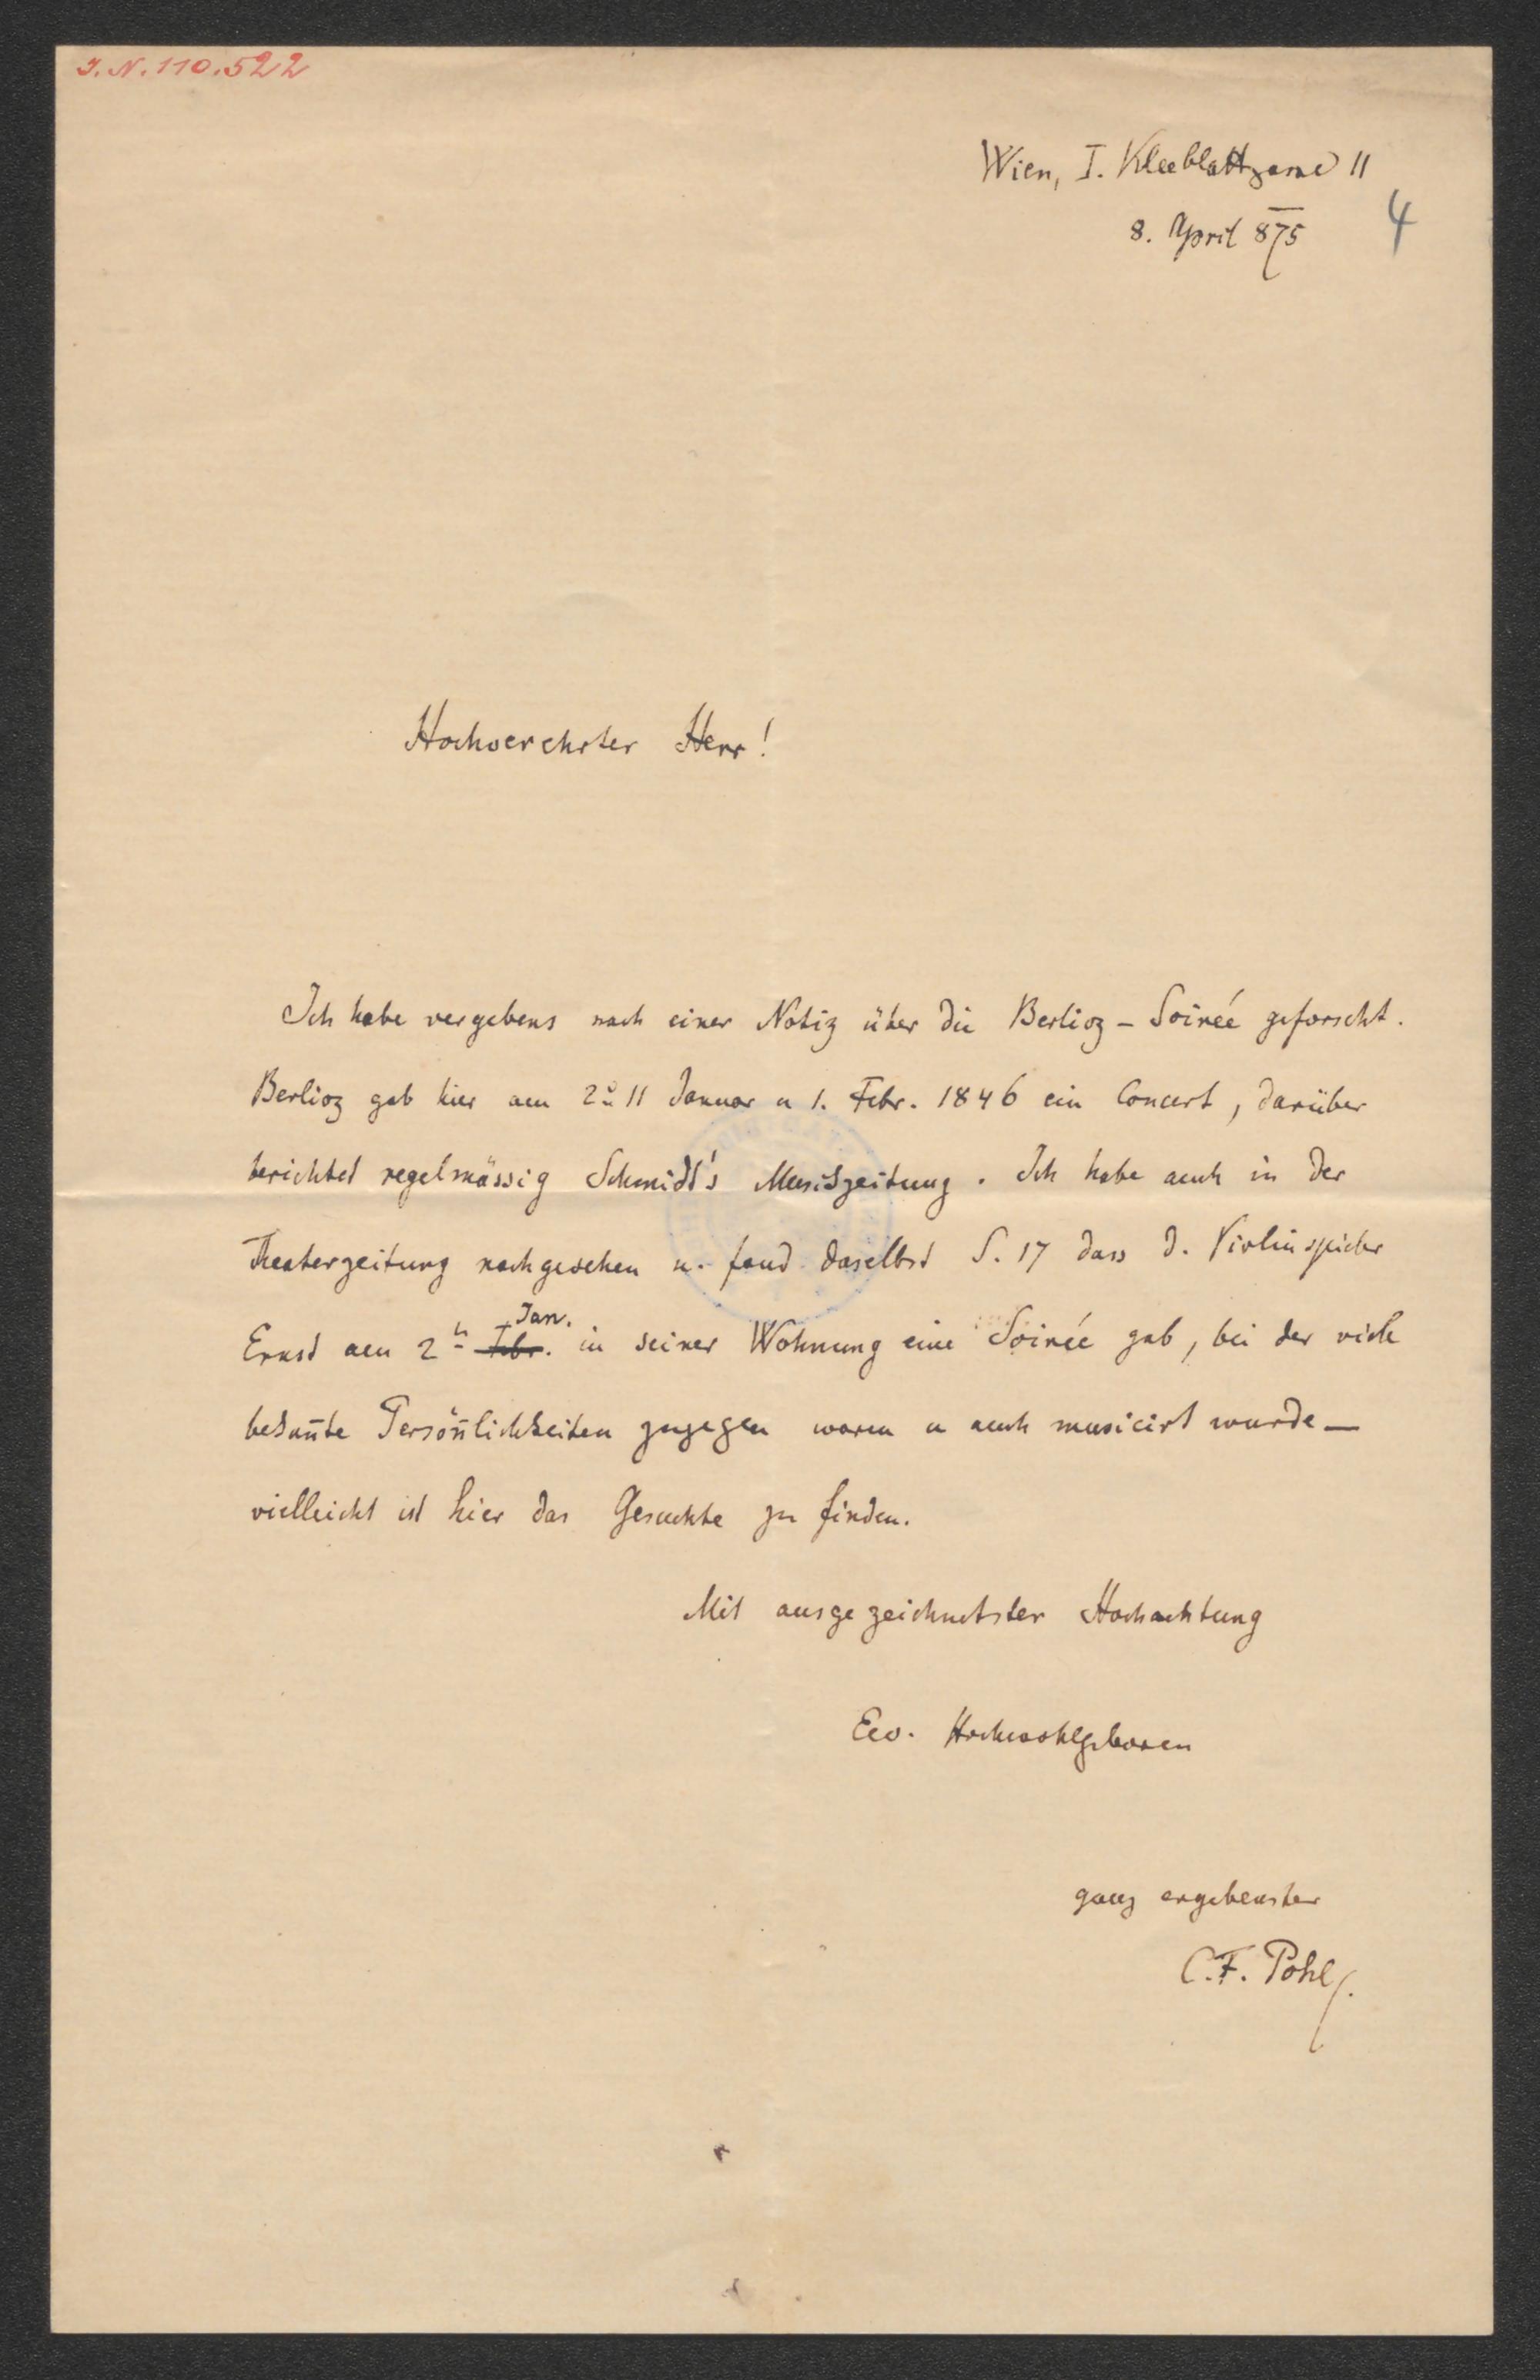 I. N. 110.522
Wien, I. Kleeblattgasse 11
8. April 875
4
Hochverehrter Herr!
Ich habe vergebens nach einer Notiz über die Berlioz - Soirée geforscht.
Berlioz gab hier am 2 u 11 Januar u 1. Febr. 1846 ein Concert, darüber
berichtet regelmässig Schmidt's Musikzeitung. Ich habe auch in der
Theaterzeitung nachgesehen u. fand daselbst S. 17 dass d. Violinspieler
Jan.
Ernst am 2n Febr. in seiner Wohnung eine Soirée gab, bei der viele
bekan̅te Persön̅lichkeiten zugegen waren u auch musicirt wurde —
vielleicht ist hier das Gesuchte zu finden.
Mit ausgezeichnetster Hochachtung
Ew. Hochwohlgeboren
ganz ergebenster
C. F. Pohl.